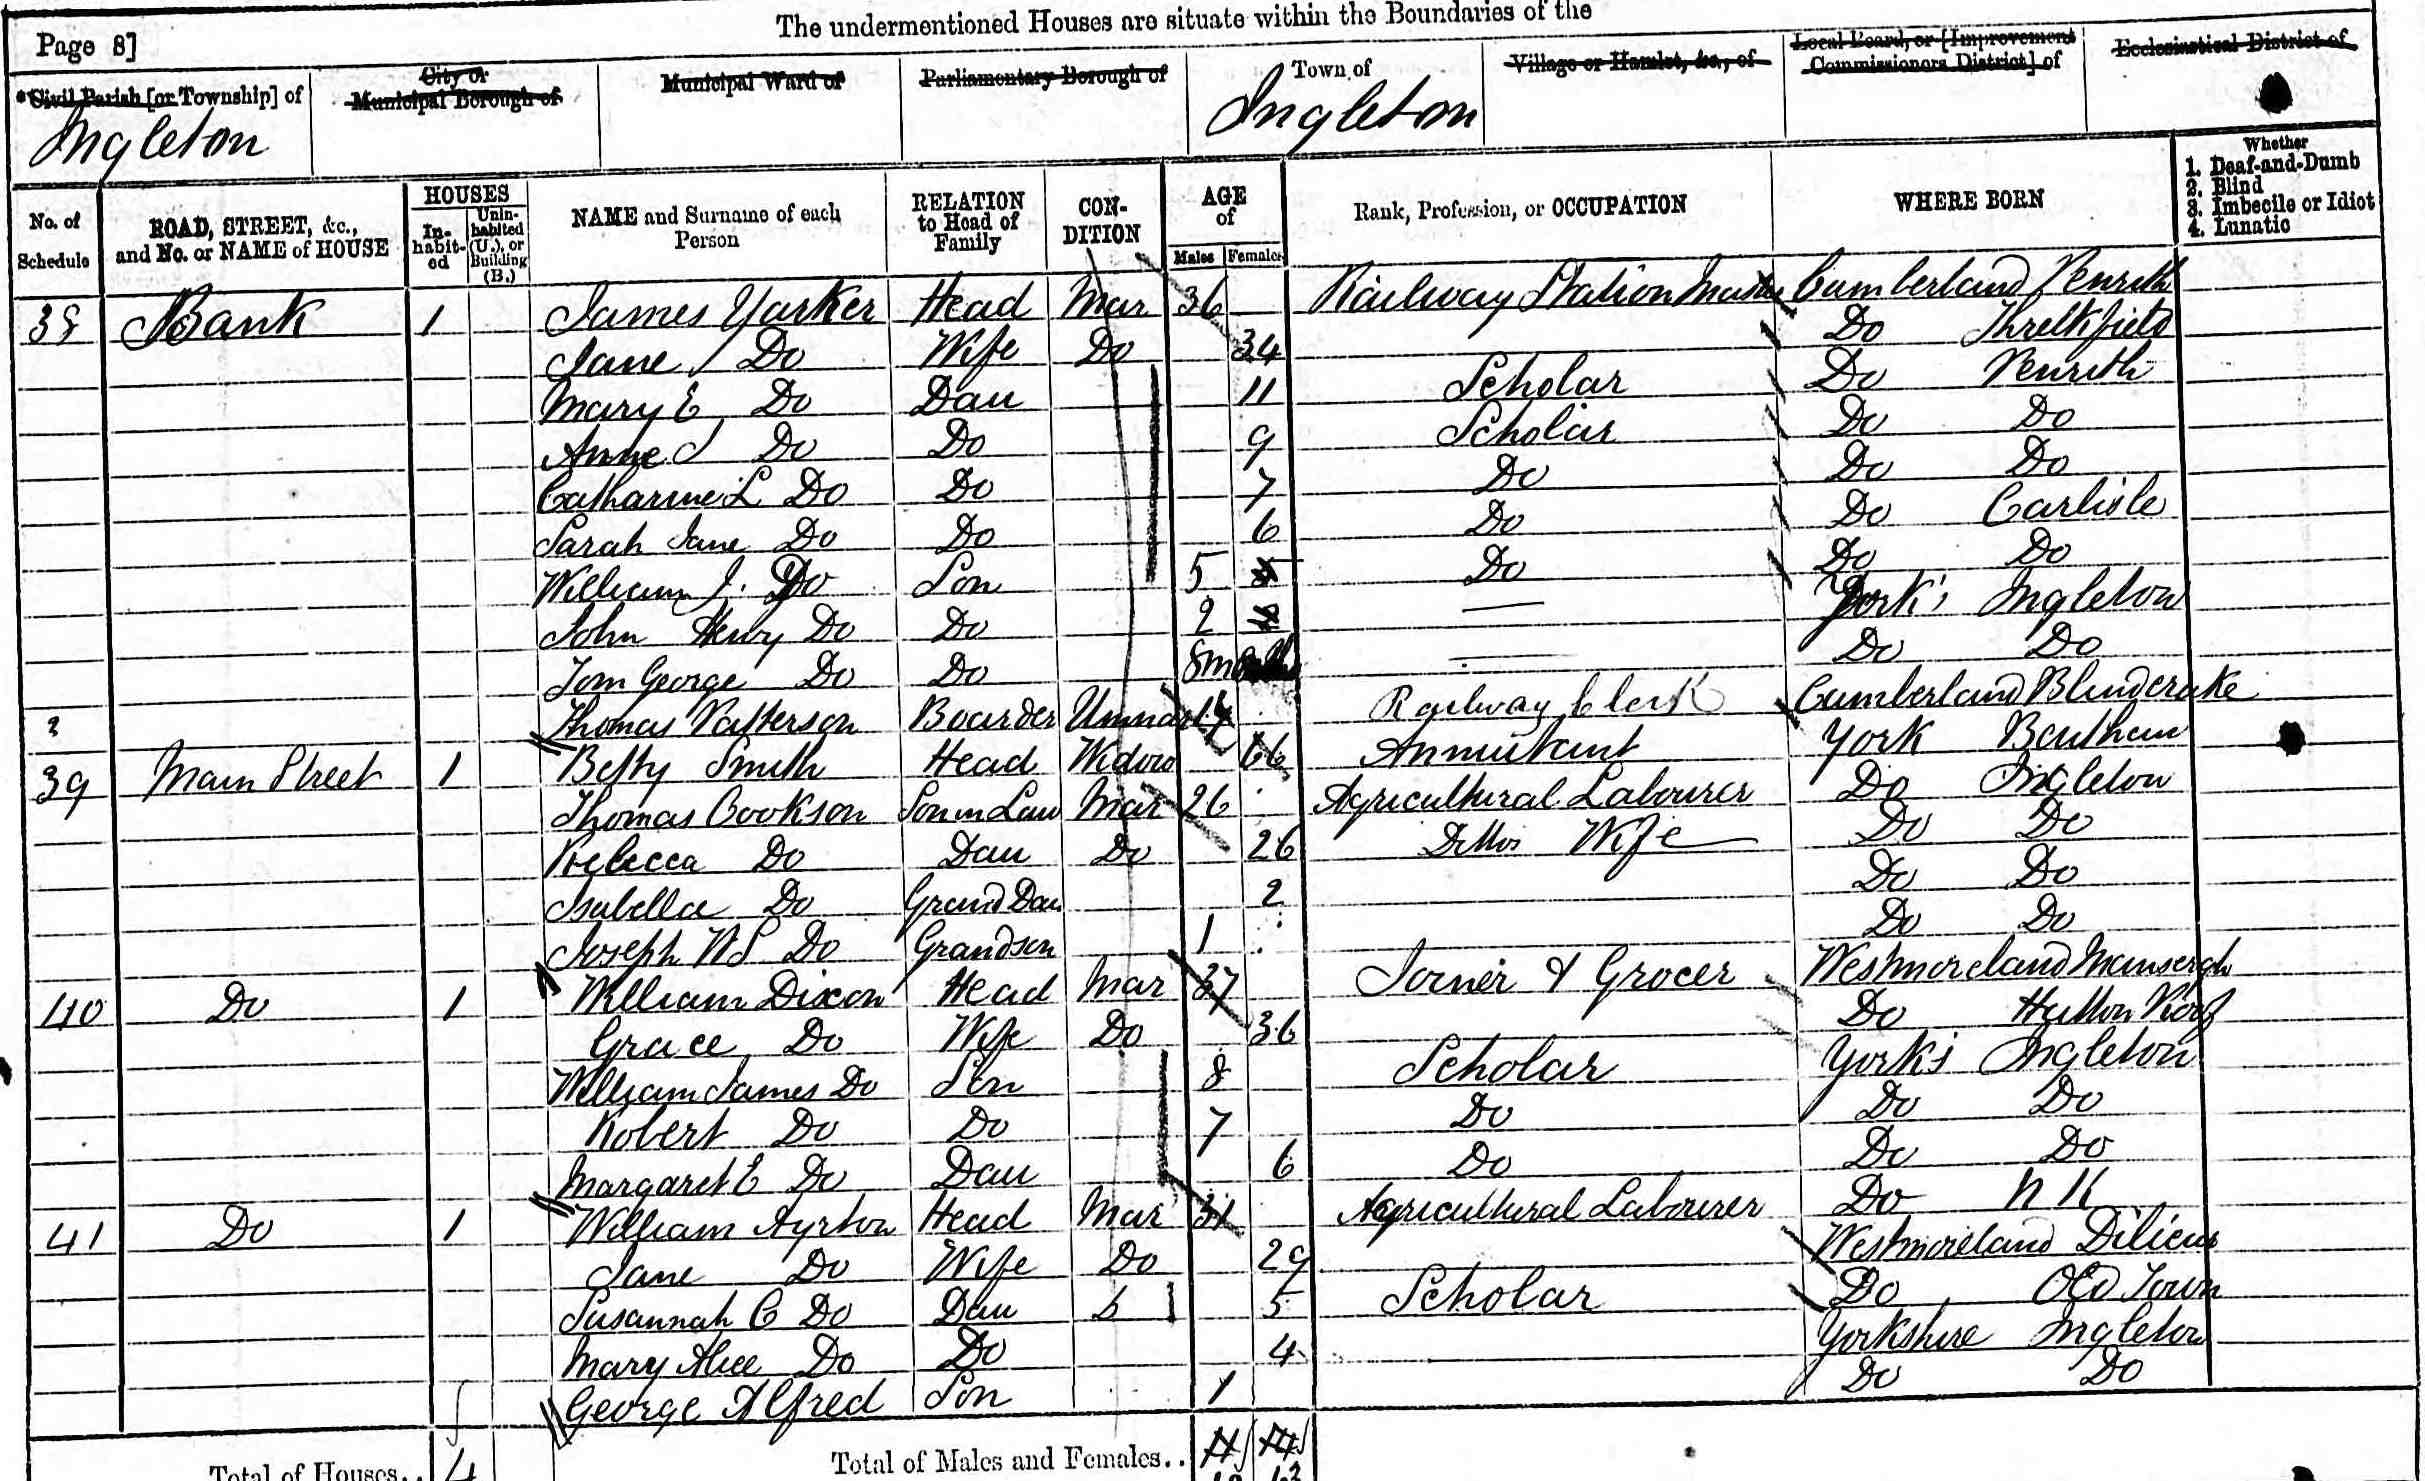 The undermentioned Houses are situate within the Boundaries of the
Page 8]
Civil Parish [or Township] of
City or Municipal Borough of
Municipal Ward of
Parliamentary Borough of
Town of
Village or Hamlet, &c., of
Local Board, or [Improvement Commissioners District] of
Ecclesiastical District of
Ingleton Ingleton
No. of Schedule
ROAD, STREET, &c., and No. or NAME of HOUSE
HOUSES
In-habit-ed
Unin-habited (U.), or Building (B.)
NAME and Surname of each Person
RELATION to Head of Family
CON-DITION
AGE of
Males Females
Rank, Profession, or OCCUPATION
WHERE BORN
Whether
1. Deaf-and-Dumb
2. Blind
3. Imbecile or Idiot
4. Lunatic
38 Bank 1 James Yarker Head Mar 36 Railway Station Master Cumberland Penrith
Jane Do Wife Do 34 Do Threlkfield
Mary E Do Dau 11 Scholar Do Penrith
Anne J Do Do 9 Scholar Do Do
Catharine L Do Do 7 Do Do Do
Sarah Jane Do Do 6 Do Do Carlisle
William J. Do Son 5 Do Do Do
John Henry Do Do 2 — York's Ingleton
Tom George Do Do 8 m — Do Do
Thomas Patterson Boarder Unmar 17 Railway Clerk Cumberland Blindcrake
39 Main Street 1 Betty Smith Head Widow 66 Annuitant York Bentham
Thomas Cookson Son in Law Mar 26 Agricultural Labourer Do Ingleton
Rebecca Do Dau Do 26 Dittos Wife Do Do
Isabella Do Grand Dau 2 Do Do
Joseph W S Do Grandson 1 Do Do
40 Do 1 William Dixon Head Mar 37 Joiner & Grocer Westmoreland Mansergh
Grace Do Wife Do 36 Do Hutton
William James Do Son 8 Scholar York's Ingleton
Robert Do Do 7 Do Do Do
Margaret E Do Dau 6 Do Do Do
41 Do 1 William Ayrton Head Mar 31 Agricultural Labourer Do N K
Jane Do Wife Do 29 Westmoreland
Susannah C Do Dau 5 Scholar Do Old Town
Mary Alice Do Do 4 Yorkshire Ingleton
George Alfred Son 1 Do Do
Total of Houses.. 4
Total of Males and Females.. 11 14